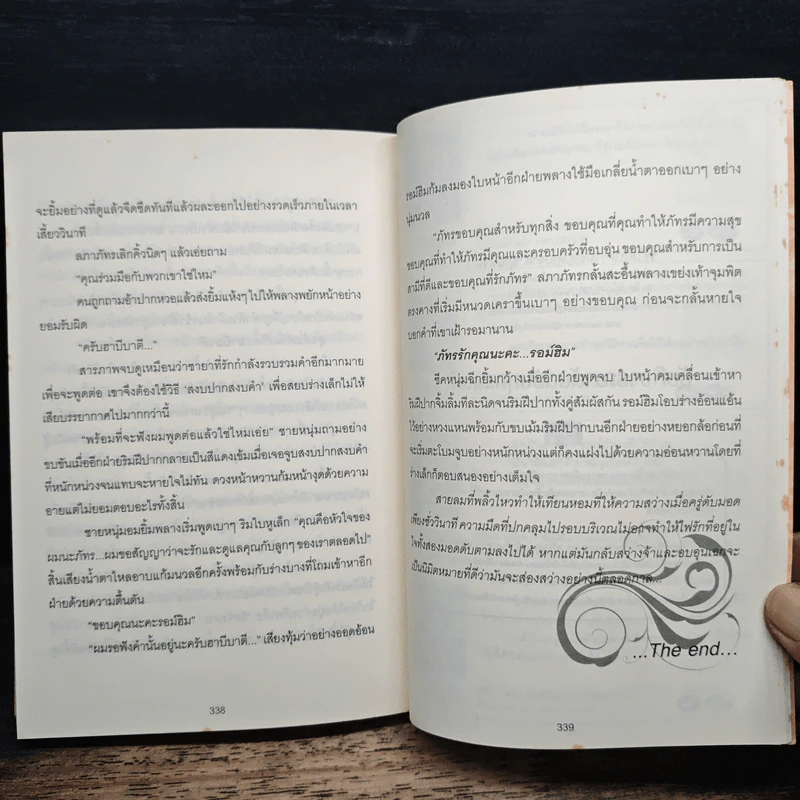 จะยิ้มอย่างที่ดูแล้วจืดชืดทันทีแล้วผละออกไปอย่างรวดเร็วภายในเวลา
เสี้ยววินาที
ลภาภัทรเลิกคิ้วนิดๆ แล้วเอ่ยถาม
“คุณร่วมมือกับพวกเขาใช่ไหม”
คนถูกถามอ้าปากหวอแล้วส่งยิ้มแห้งๆ ไปให้พลางพยักหน้าอย่าง
ยอมรับผิด
“ครับฮาบีบาตี...”
สารภาพจบดูเหมือนว่าชายาที่รักกำลังรวบรวมคำอีกมากมาย
เพื่อจะพูดต่อ เขาจึงต้องใช้วิธี ‘สงบปากสงบคำ’ เพื่อสยบร่างเล็กไม่ให้
เสียบรรยากาศไปมากกว่านี้
“พร้อมที่จะฟังผมพูดต่อแล้วใช่ไหมเอ่ย” ชายหนุ่มถามอย่าง
ขบขันเมื่ออีกฝ่ายริมฝีปากกลายเป็นสีแดงเข้มเมื่อเจอจูบสงบปากสงบคำ
ที่หนักหน่วงจนแทบจะหายใจไม่ทัน ดวงหน้าหวานก้มหน้างุดด้วยความ
อายแต่ไม่ยอมตอบอะไรทั้งสิ้น
ชายหนุ่มอมยิ้มพลางเริ่มพูดเบาๆ ริมใบหูเล็ก “คุณคือหัวใจของ
ผมนะภัทร...ผมขอสัญญาว่าจะรักและดูแลคุณกับลูกๆ ของเราตลอดไป”
สิ้นเสียงน้ำตาไหลอาบแก้มนวลอีกครั้งพร้อมกับร่างบางที่โถมเข้าหาอีก
ฝ่ายด้วยความตื้นตัน
“ขอบคุณนะคะรอม์ฮิม”
“ผมรอฟังคำนั้นอยู่นะครับฮาบีบาตี...” เสียงทุ้มว่าอย่างออดอ้อน
338
รอม์ฮิมก้มลงมองใบหน้าอีกฝ่ายพลางใช้มือเกลี่ยน้ำตาออกเบาๆ อย่าง
นุ่มนวล
“ภัทรขอบคุณสำหรับทุกสิ่ง ขอบคุณที่คุณทำให้ภัทรมีความสุข
ขอบคุณที่ทำให้ภัทรมีคุณและครอบครัวที่อบอุ่น ขอบคุณสำหรับการเป็น
สามีที่ดีและขอบคุณที่รักภัทร” ลภาภัทรกลั้นสะอื้นพลางเขย่งเท้าจุมพิต
ตรงคางที่เริ่มมีหนวดเคราขึ้นเบาๆ อย่างขอบคุณ ก่อนจะกลั้นหายใจ
บอกคำที่เขาเฝ้ารอมานาน
“ภัทรรักคุณนะคะ...รอม์ฮิม”
ชีคหนุ่มฉีกยิ้มกว้างเมื่ออีกฝ่ายพูดจบ ใบหน้าคมเคลื่อนเข้าหา
ริมฝีปากจิ้มลิ้มทีละนิดจนริมฝีปากทั้งคู่สัมผัสกัน รอม์ฮิมโอบร่างอ้อนแอ้น
ไว้อย่างหวงแหนพร้อมกับขบเม้มริมฝีปากบนอีกฝ่ายอย่างหยอกล้อก่อนที่
จะเริ่มตะโบมจูบอย่างหนักหน่วง แต่ก็คงแฝงไปด้วยความอ่อนหวานโดยที่
ร่างเล็กก็ตอบสนองอย่างเต็มใจ
สายลมที่พลิ้วไหวทำให้เทียนหอมที่ให้ความสว่างเมื่อครู่ดับมอด
เพียงชั่ววินาที ความมืดที่ปกคลุมไปรอบบริเวณไม่อาจทำให้ไฟรักที่อยู่ใน
ใจทั้งสองมอดดับตามลงไปได้ หากแต่มันกลับสว่างจ้าและอบอุ่นเอกจะ
เป็นนิมิตหมายที่ดีว่ามันจะส่องสว่างอย่างนี้ตลอดกาล...
...The end...
339